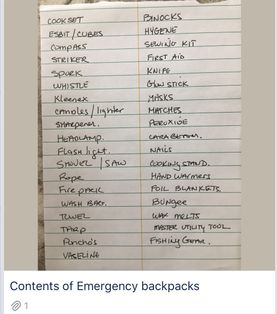 COOKSET
ESBIT/CUBES
COMPASS
STRIKER
SPORK
WHISTLE
Kleenex
CANDLES/lighter
SHARPENER.
HEADLAMP.
Flash light.
SHOVEL/SAW
Rope
Fire pack
WASH BAG.
TOWEL
TARP
Poncho's
VASELINE
BINOCKS
HYGENE
SEWING KIT
FIRST AID
KNIFE
Glow STICK
MASKS
MATCHES
PEROXIDE
NAILS
COOKING STAND.
HAND WARMERS
FOIL BLANKETS.
Bungee
WAX MELTS
MASTER UTILITY TOOL
FISHING GEAR.
Contents of Emergency backpacks
1